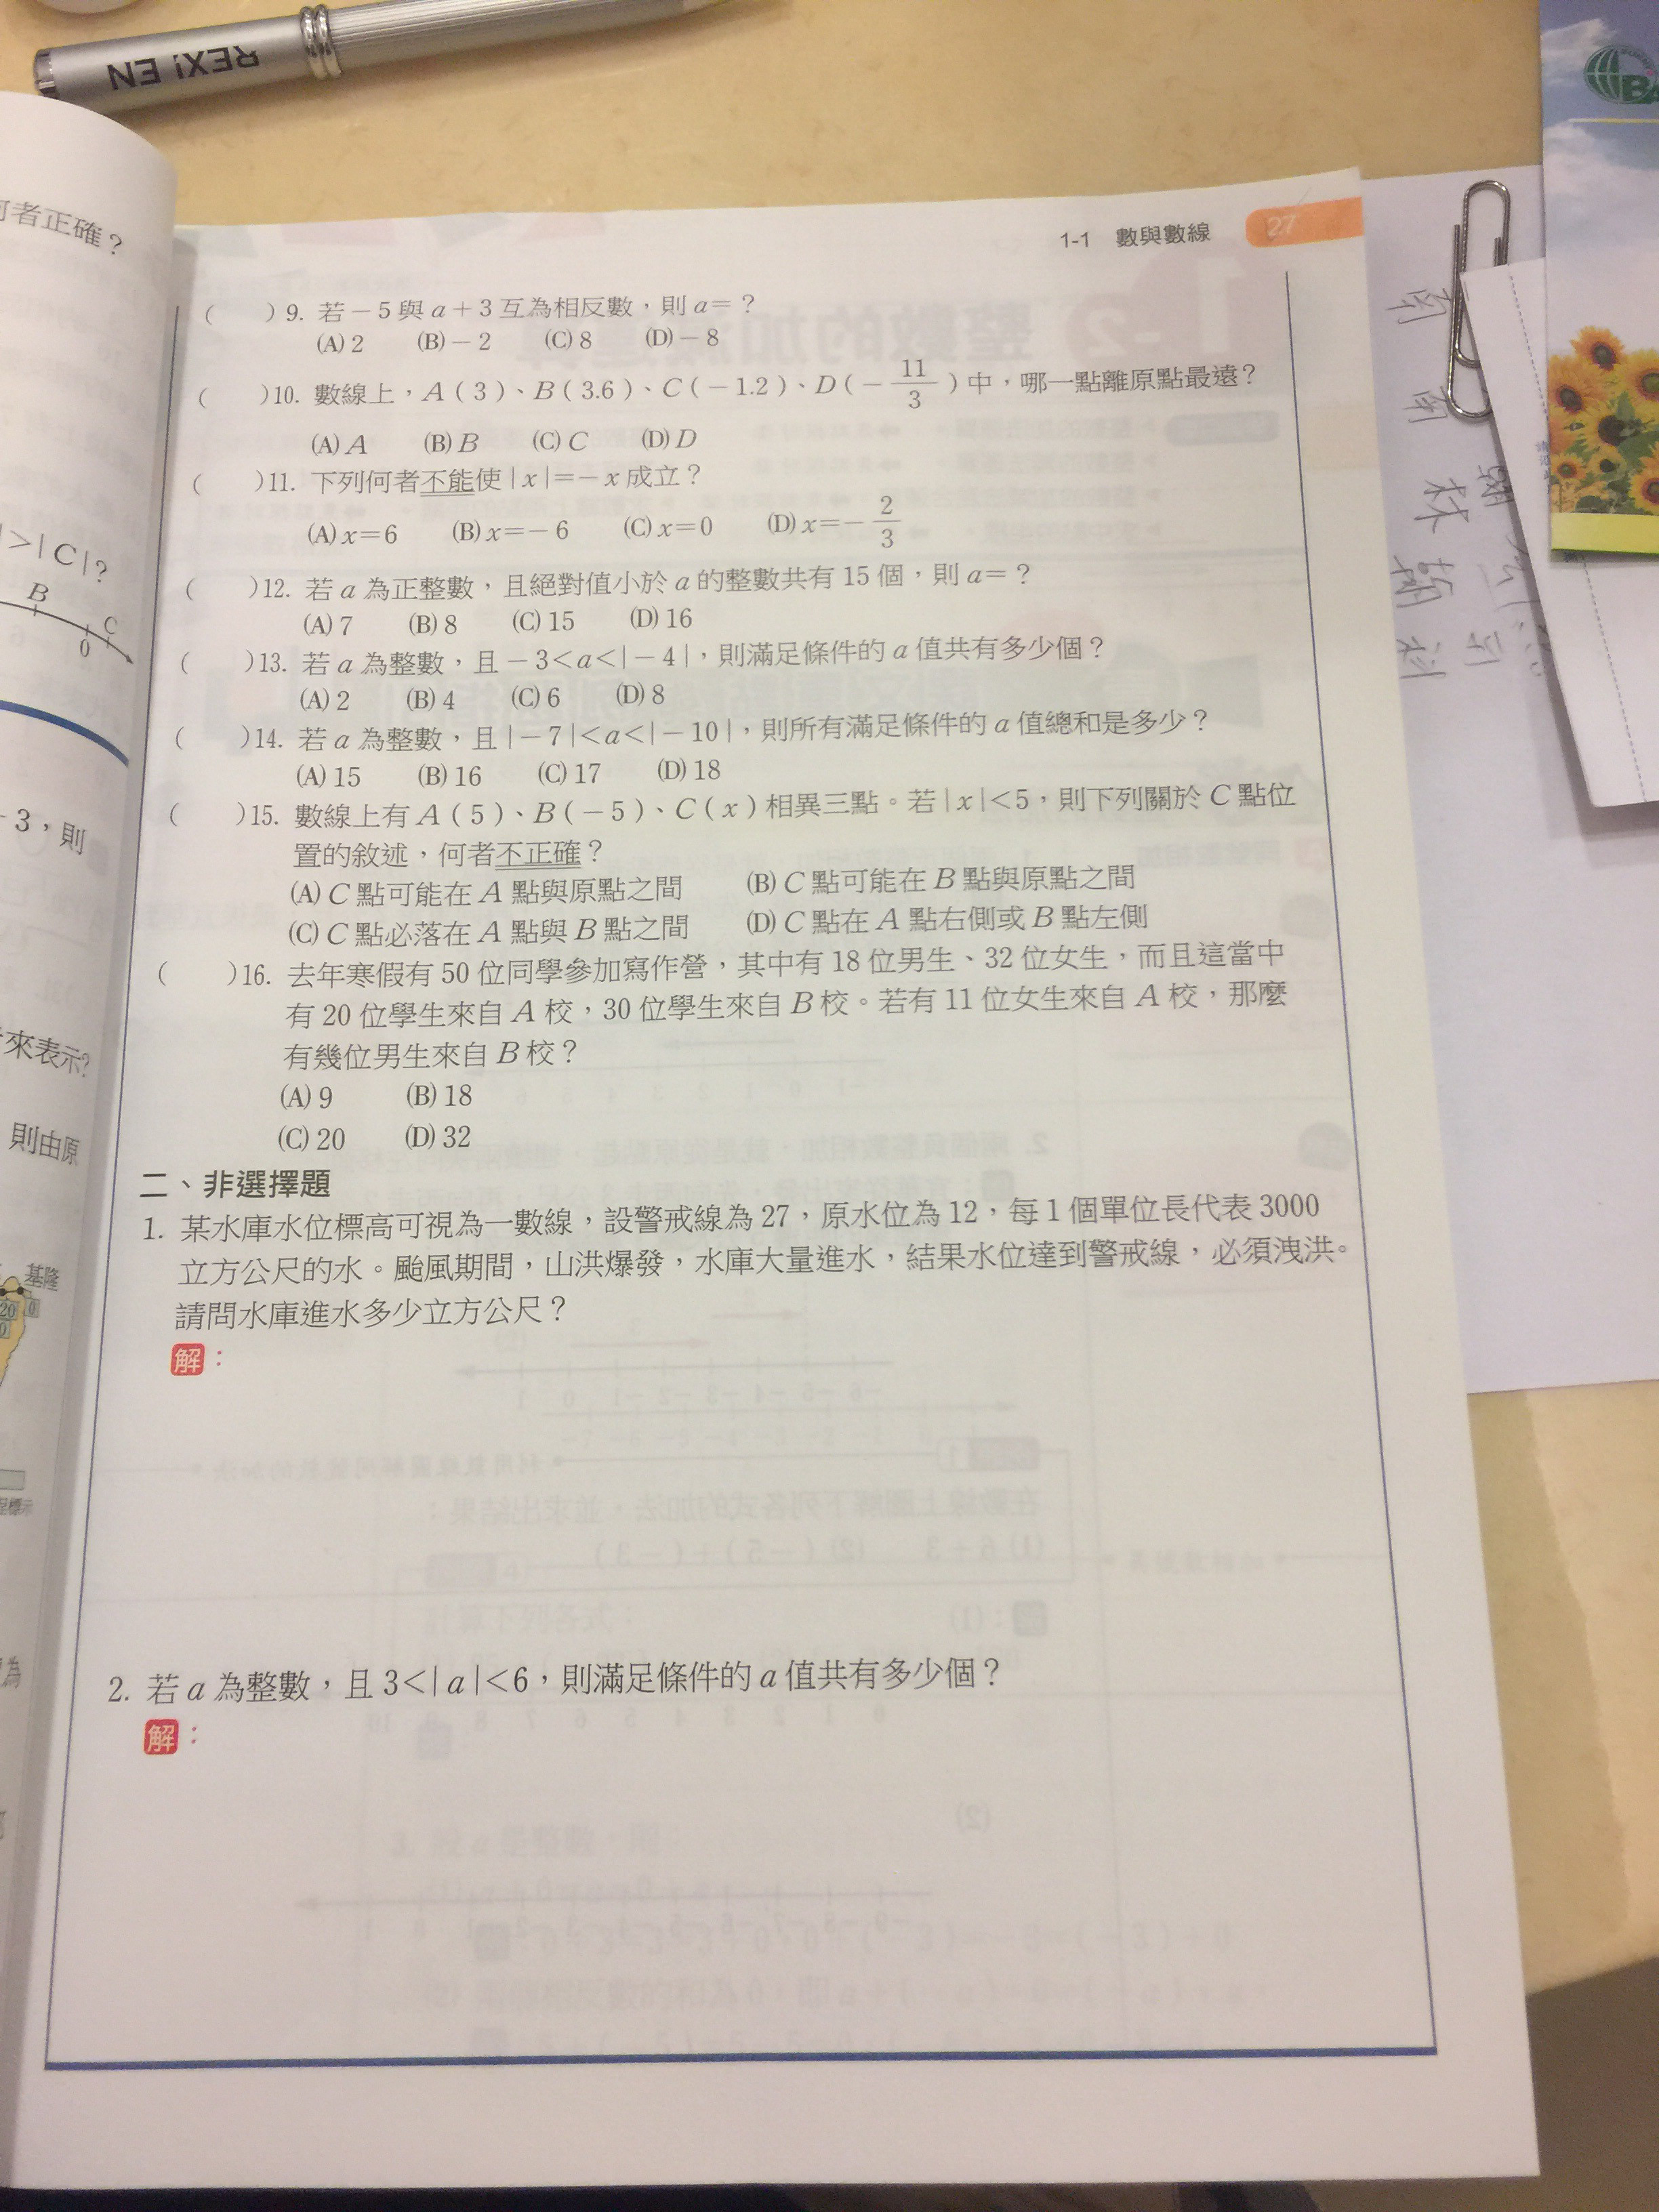 REX! EN
何者正確？
1-1 數與數線 27
( ) 9. 若－5與a＋3互為相反數，則a＝？
(A) 2 (B)－2 (C) 8 (D)－8
( )10. 數線上，A(3)、B(3.6)、C(－1.2)、D(－11/3)中，哪一點離原點最遠？
(A) A (B) B (C) C (D) D
( )11. 下列何者不能使|x|＝－x成立？
(A) x＝6 (B) x＝－6 (C) x＝0 (D) x＝－2/3
( )12. 若a為正整數，且絕對值小於a的整數共有15個，則a＝？
(A) 7 (B) 8 (C) 15 (D) 16
( )13. 若a為整數，且－3<a<|－4|，則滿足條件的a值共有多少個？
(A) 2 (B) 4 (C) 6 (D) 8
( )14. 若a為整數，且|－7|<a<|－10|，則所有滿足條件的a值總和是多少？
(A) 15 (B) 16 (C) 17 (D) 18
( )15. 數線上有A(5)、B(－5)、C(x)相異三點。若|x|<5，則下列關於C點位
置的敘述，何者不正確？
(A) C點可能在A點與原點之間 (B) C點可能在B點與原點之間
(C) C點必落在A點與B點之間 (D) C點在A點右側或B點左側
( )16. 去年寒假有50位同學參加寫作營，其中有18位男生、32位女生，而且這當中
有20位學生來自A校，30位學生來自B校。若有11位女生來自A校，那麼
有幾位男生來自B校？
(A) 9 (B) 18
(C) 20 (D) 32
二、非選擇題
1. 某水庫水位標高可視為一數線，設警戒線為27，原水位為12，每1個單位長代表3000
立方公尺的水。颱風期間，山洪爆發，水庫大量進水，結果水位達到警戒線，必須洩洪。
請問水庫進水多少立方公尺？
解：
2. 若a為整數，且3<|a|<6，則滿足條件的a值共有多少個？
解：
>|C|?
B
0
C
3，則
來表示?
則由原
基隆
20 0
為